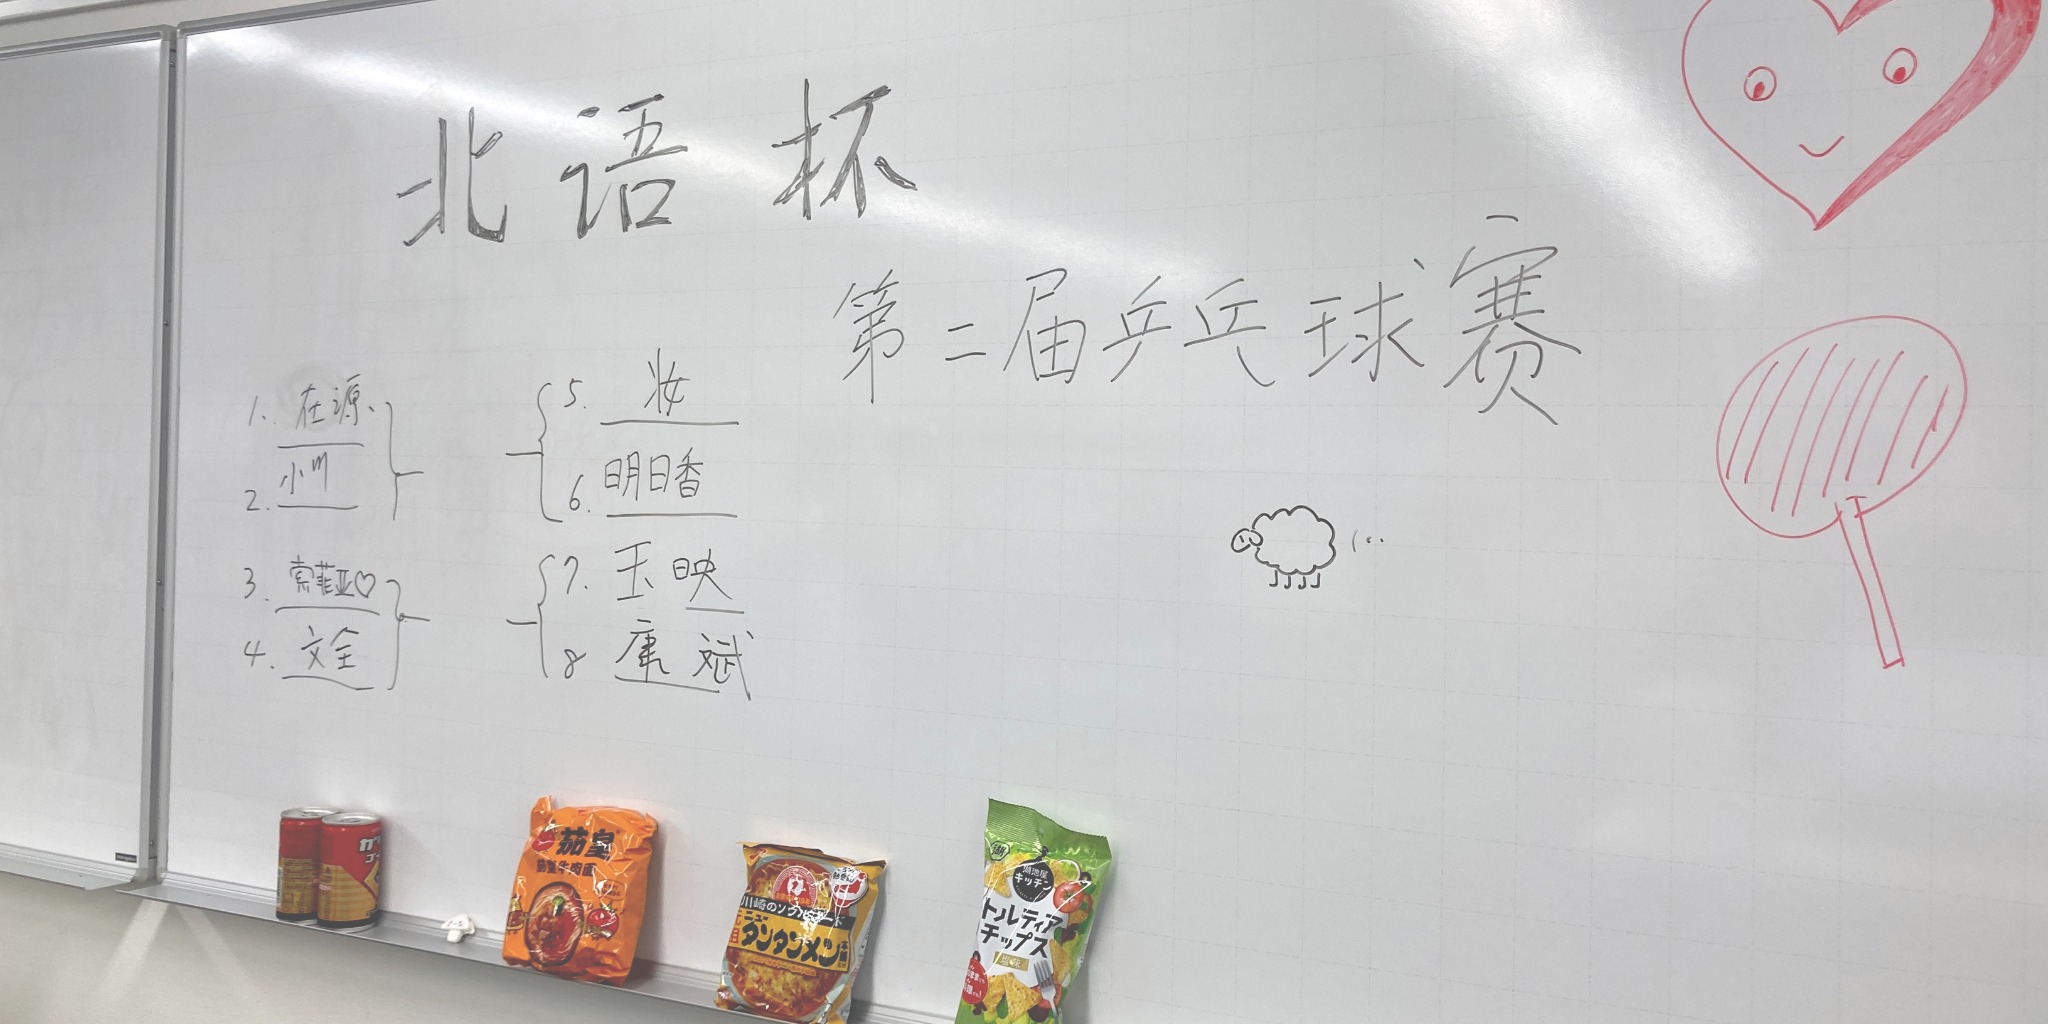 北语杯
第二届乒乓球赛
1. 在源
2. 小川
3. 索菲亚♡
4. 文全
5. 妆
6. 明日香
7. 玉映
8 康斌
茄皇
牛肉面
川崎のソウルフード
元祖
ニュー
タンタンメン
本舗
湖
湖池屋
キッチン
トルティア
チップス